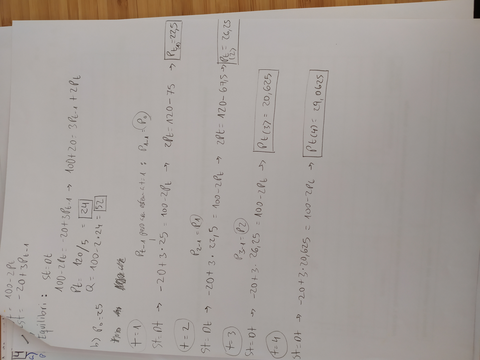 100-2Pt
-20+3Pt-1
Equilibri: St=Dt
100-2Pt = -20+3Pt-1 → 100+20 = 3Pt-1+2Pt
Pt = 120/5 = 24
Q = 100-2·24 = 52
b) P0=25
t=1)
St=Dt → -20+3·25 = 100-2Pt → 2Pt=120-75 → Pt(1)=22,5
t=2
P2-1=P1
St=Dt → -20+3·22,5 = 100-2Pt → 2Pt=120-67,5 → Pt(2)=26,25
t=3
P3-1=P2
St=Dt → -20+3·26,25 = 100-2Pt → Pt(3)=20,625
t=4
St=Dt → -20+3·20,625 = 100-2Pt → Pt(4)=29,0625